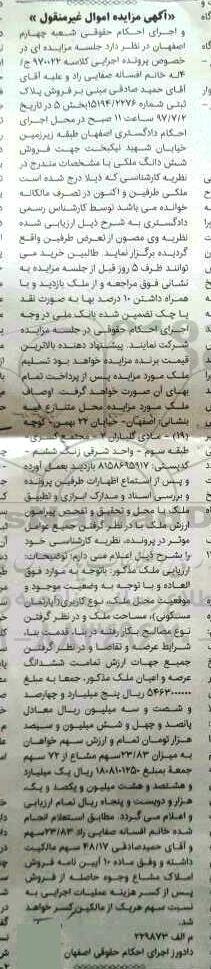 «آگهی مزایده اموال غیرمنقول»
و اجرای احکام حقوقی شعبه چهارم
اصفهان در نظر دارد جلسه مزایده ای در
خصوص پرونده اجرایی کلاسه ۹۷۰۰۲۲ ج/
۴له خانم افسانه صفایی راد و علیه آقای
آقای حمید صادقی مبنی بر فروش پلاک
ثبتی شماره ۱۵۱۹۴/۲۲۷۶بخش ۵ در تاریخ
۹۷/۷/۲ ساعت ۱۱ صبح در محل اجرای
احکام دادگستری اصفهان طبقه زیرزمین
خیابان شهید نیکبخت جهت فروش
شش دانگ ملکی با مشخصات مندرج در
نظریه کارشناسی که ذیلا درج شده است
ملکی طرفین و اکنون در تصرف مالکانه
خوانده می باشد توسط کارشناس رسمی
دادگستری به شرح ذیل ارزیابی شده
نظریه وی مصون از تعرض طرفین واقع
گردیده برگزار نمایند. طالبین خرید می
توانند ظرف ۵ روز قبل از جلسه مزایده به
نشانی فوق مراجعه و از ملک بازدید و با
همراه داشتن ۱۰ درصد بها به صورت نقد
یا چک تضمین شده بانک ملی در وجه
اجرای احکام حقوقی در جلسه مزایده
شرکت نمایند. پیشنهاد دهنده بالاترین
قیمت برنده مزایده خواهد بود تسلیم
ملک مورد مزایده پس از پرداخت تمام
بهای آن صورت خواهد گرفت. اوصاف
ملک مورد مزایده محل متنازع فیه
بنشانی: اصفهان- خیابان ۲۲ بهمن- کوچه
(۱۹) - منادی گلباران ۲ - مجتمع کسری-
طبقه سوم - واحد شرقی زنگ ششم -
کدپستی: ۸۱۵۸۶۹۵۹۱۷ بازدید بعمل آورده
و پس از استماع اظهارات طرفین پرونده
و بررسی اسناد و مدارک ابرازی و تطبیق
ملک با محل و تحقیق و تفحص پیرامون
ارزش ملک با در نظر گرفتن جمیع عوامل
موثر در پرونده، نظریه کارشناسی خود
را بشرح ذیل اعلام می دارم: توضیحات
ارزیابی ملک مذکور: باتوجه به موارد فوق
العاده و با توجه به وضعیت موجود و
موقعیت محل ملک، نوع کاربری(آپارتمان
مسکونی)، مساحت ملک و در نظر گرفتن
نوع مصالح بکار رفته در بنا، قدمت بنا،
شرایط عرضه و تقاضا و در نظر گرفتن
جمیع جهات ارزش تمامت ششدانگ
عرصه و اعیان ملک مذکور، جمعا به مبلغ
۵۴۶۳۰۰۰۰۰۰ ریال پنج میلیارد و چهارصد
و شصت و سه میلیون ریال معادل
پانصد و چهل و شش میلیون و سیصد
هزار تومان تمام و ارزش سهم خواهان
به میزان ۲۳/۸۳سهم مشاع از ۷۲ سهم
جمعا بمبلغ ۱۸۰۸۱۰۱۲۵۰ ریال یک میلیارد
و هشتصد و هشت میلیون و یکصد و یک،
هزار و دویست و پنجاه ریال تمام ارزیابی
و اعلام می گردد. مطابق استعلام انجام
شده خانم افسانه صفایی راد ۲۳/۸۳سهم
و آقای حمیدصادقی ۴۸/۱۷ سهم مالکیت
داشته و وفق ماده ۱۰ آیین نامه فروش
املاک مشاع وجوه حاصله از فروش
پس از کسر هزینه عملیات اجرایی به
نسبت سهم هریک از مالکین کسر خواهد
شد.
م الف ۲۲۹۸۷۳
دادورز اجرای احکام حقوقی اصفهان